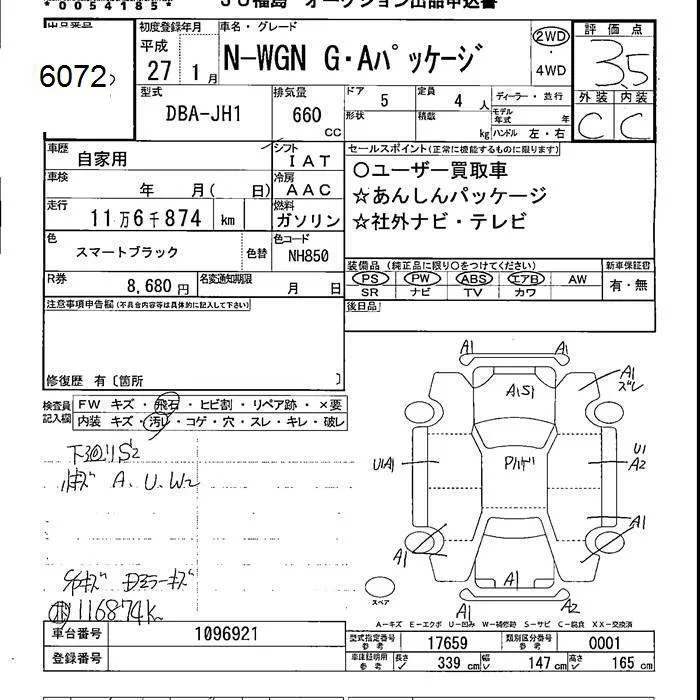 * 0 0 5 4 4 1 8 5 *
JU福島 オークション出品申込書
出品番号
6072
初度登録年月
平成
27 1月
車名・グレード
N-WGN G・Aパッケージ
2WD
・
4WD
評価点
3.5
外装 内装
C C
型式
DBA-JH1
排気量
660
cc
ドア
5
定員
4 人
ディーラー・並行
形状
積載
kg
モデル年式
年
ハンドル 左・右
車歴
自家用
シフト
IAT
車検
年 月( 日)
冷房
AAC
走行
11万6千874 km
燃料
ガソリン
色
スマートブラック
色替
色コード
NH850
R券
8,680円
名変通知期限
月 日
セールスポイント(正常に機能するものに限り)
○ユーザー買取車
☆あんしんパッケージ
☆社外ナビ・テレビ
装備品(純正品に限り○をつけてください)
PS PW ABS エアB AW
SR ナビ TV カワ
新車保証書
有・無
注意事項申告欄(不具合内容等は具体的に記入して下さい)
後日品
修復歴 有〔箇所 〕
検査員記入欄
FW キズ・飛石・ヒビ割・リペア跡・×要
内装 キズ・汚レ・コゲ・穴・スレ・キレ・破レ
下回りS2
小キズ A、U、W2
Dミラーキズ
116874K
A1 A1
A1S1
A1
ズレ
U1A1
U1
A2
A1 A1
A1
A1 A2
スペア
A-キズ E-エクボ U-凹み W-補修跡 S-サビ C-腐食 XX-交換済
車台番号 1096921
登録番号
型式指定番号
参考
17659
類別区分番号
参考
0001
車庫証明用
参考
長さ 339 cm 幅 147 cm 高さ 165 cm